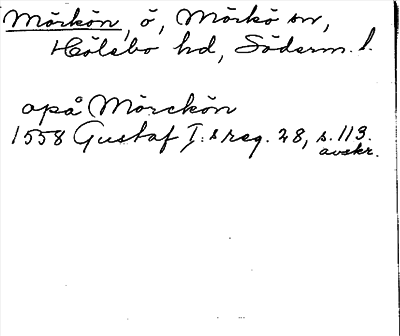 Mörkön, ö, Mörkö sn,
Hölebo hd, Söderm. l.
apå Mörckön
1558 Gustaf I:s reg. 28, s. 113.
avskr.